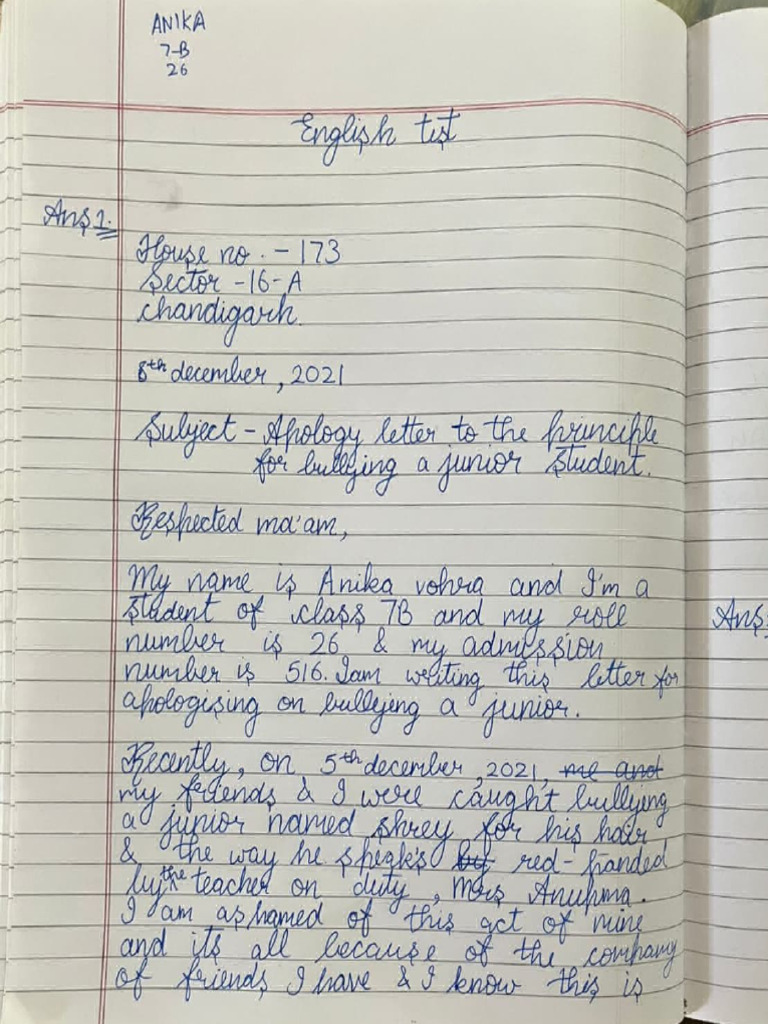 ANIKA
7-B
26
English test
Ans 1.
House no. - 173
Sector -16-A
chandigarh.
8th december, 2021
Subject - Apology letter to the principle
for bullying a junior student.
Respected ma'am,
My name is Anika vohra and I'm a
student of class 7B and my roll
number is 26 & my admission
number is 516. I am writing this letter for
apologising on bullying a junior.
Recently, on 5th december, 2021, me and
my friends & I were caught bullying
a junior named shrey for his hair
& the way he speaks by red-handed
by the teacher on duty, Mrs Anupma.
I am ashamed of this act of mine
and its all because of the company
of friends I have & I know this is
Ans